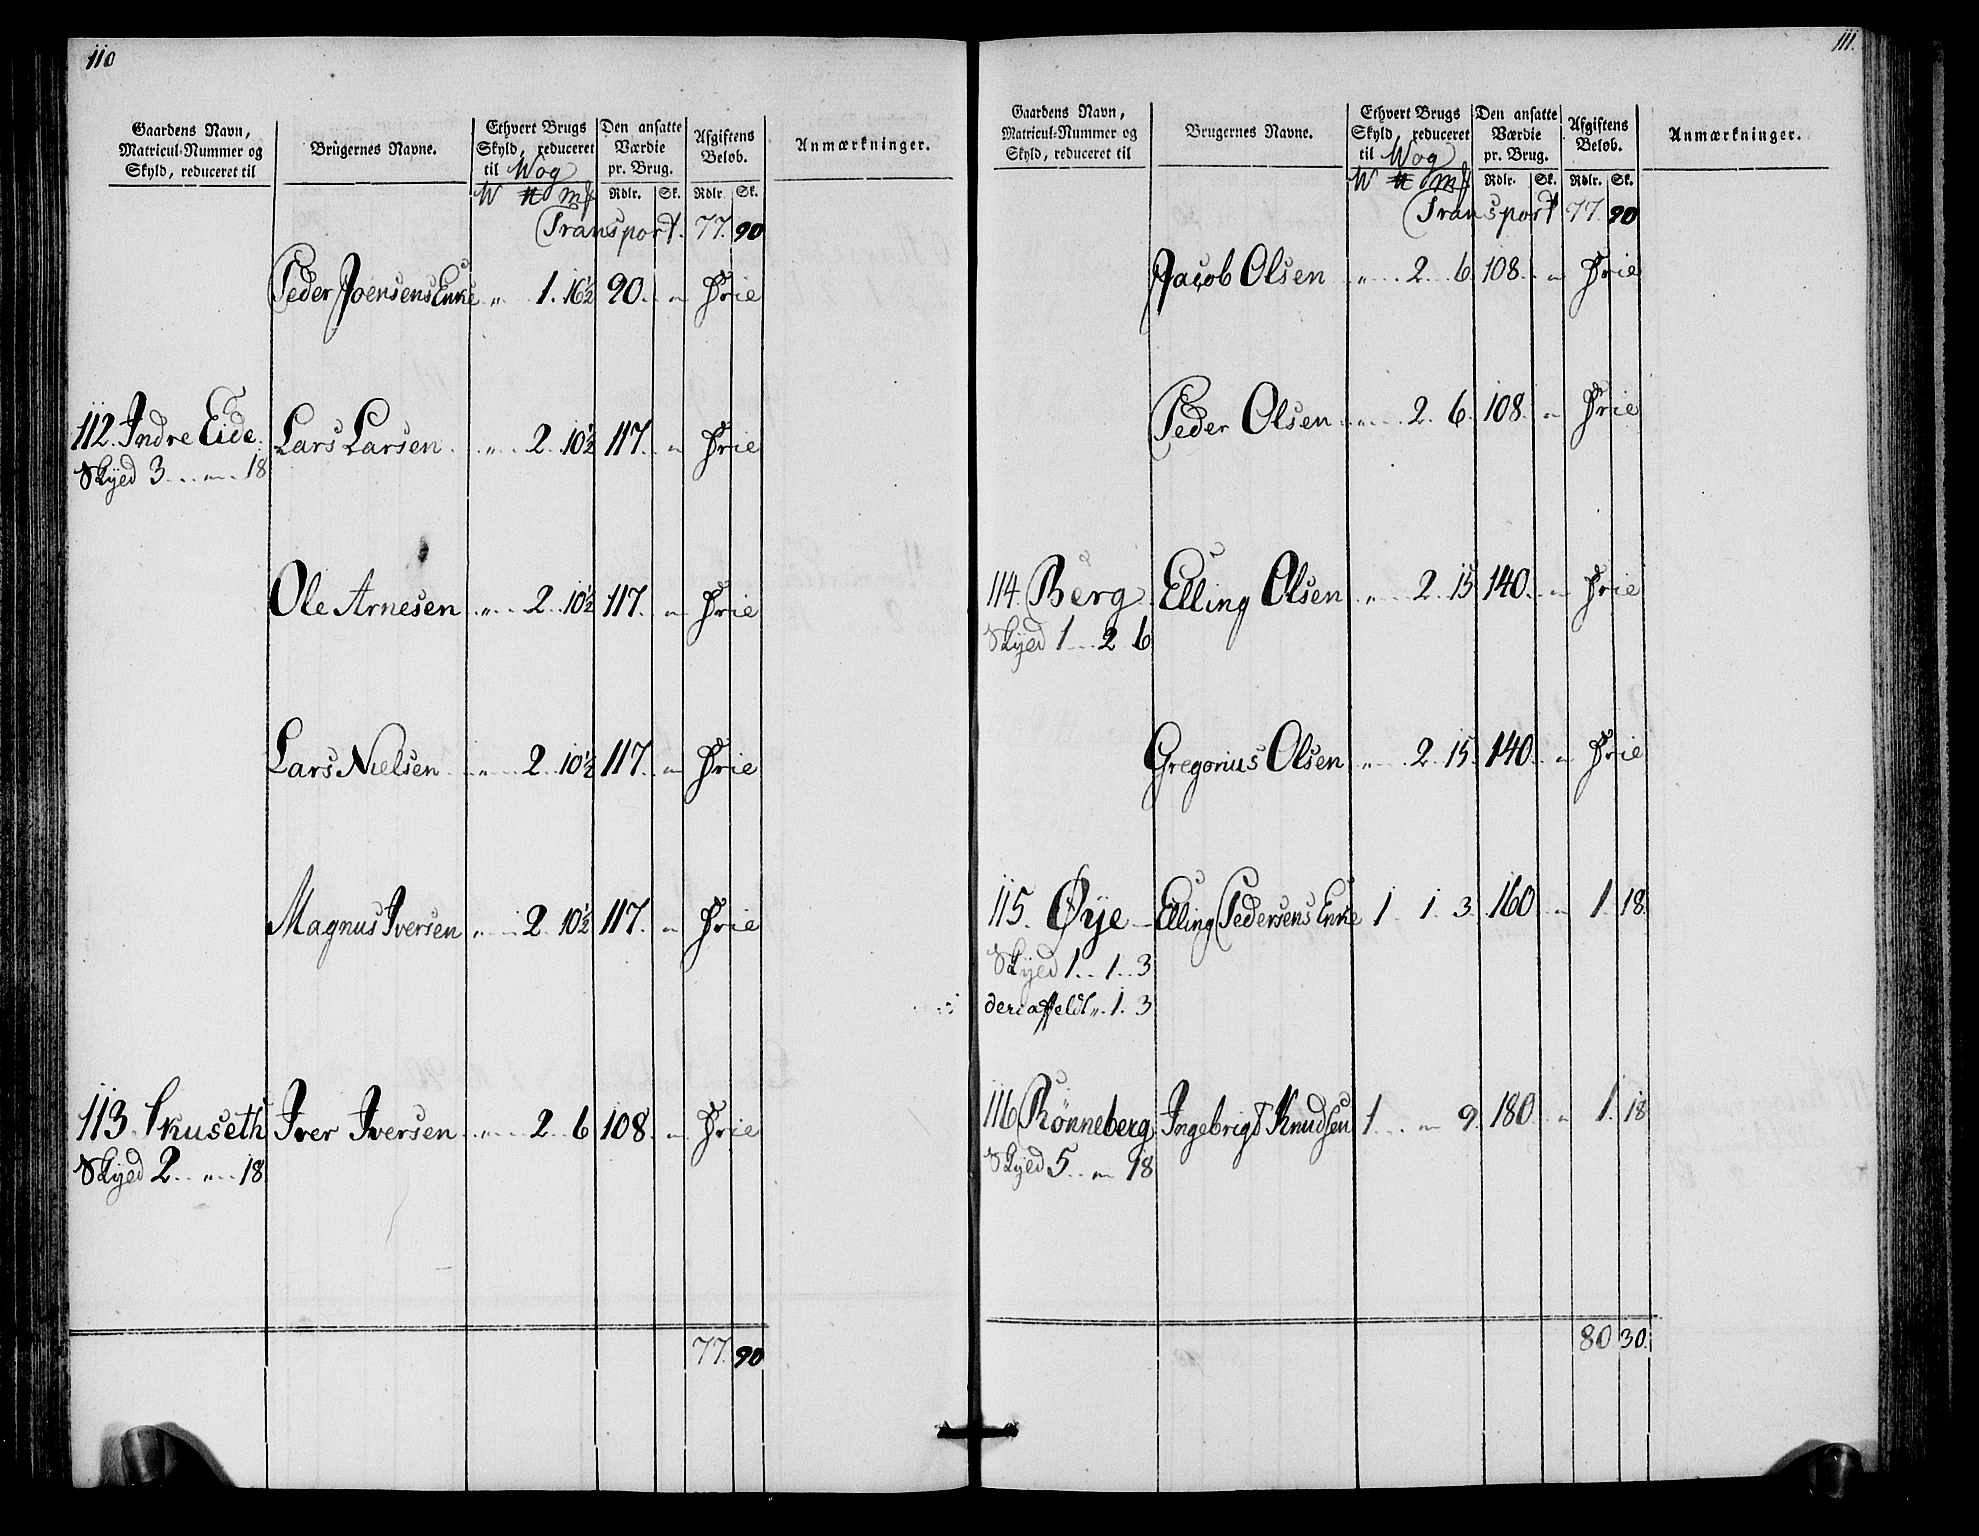 110
Gaardens Navn, Matricul-Nummer og Skyld, reduceret til
Brugernes Navne.
Ethvert Brugs Skyld, reduceret til Wog
W ℔ mk
Den ansatte Værdie pr. Brug.
Rdlr. Sk.
Afgiftens Beløb.
Rdlr. Sk.
Anmærkninger.
Transport. 77. 90
Peder Joensens Enke „ 1. 16½ 90. „ Frie
112. Indre Eide. Lars Larsen „ 2. 10½ 117. „ Frie
Skyld 3 „ 18
Ole Arnesen „ 2. 10½ 117. „ Frie
Lars Nielsen „ 2. 10½ 117. „ Frie
Magnus Iversen „ 2. 10½ 117. „ Frie
113. Skuseth Iver Iversen „ 2. 6 108. „ Frie
Skyld 2 „ 18
77. 90
111.
Gaardens Navn, Matricul-Nummer og Skyld, reduceret til
Brugernes Navne.
Ethvert Brugs Skyld, reduceret til Wog
W ℔ mk
Den ansatte Værdie pr. Brug.
Rdlr. Sk.
Afgiftens Beløb.
Rdlr. Sk.
Anmærkninger.
Transport 77. 90
Jacob Olsen „ 2. 6. 108. „ Frie
Peder Olsen „ 2. 6. 108. „ Frie
114. Berg Elling Olsen „ 2. 15. 140. „ Frie
Skyld 1 2 6
Gregorius Olsen „ 2. 15. 140. „ Frie
115. Øye Elling Pedersens Enke 1 1. 3. 160 „ 1. 18.
Skyld 1. 1. 3
deri affeldt „ 1. 3
116 Rönneberg Ingebrigt Knudsen 1 „ 9. 180 „ 1. 18
Skyld 5 „ 18
80. 30.